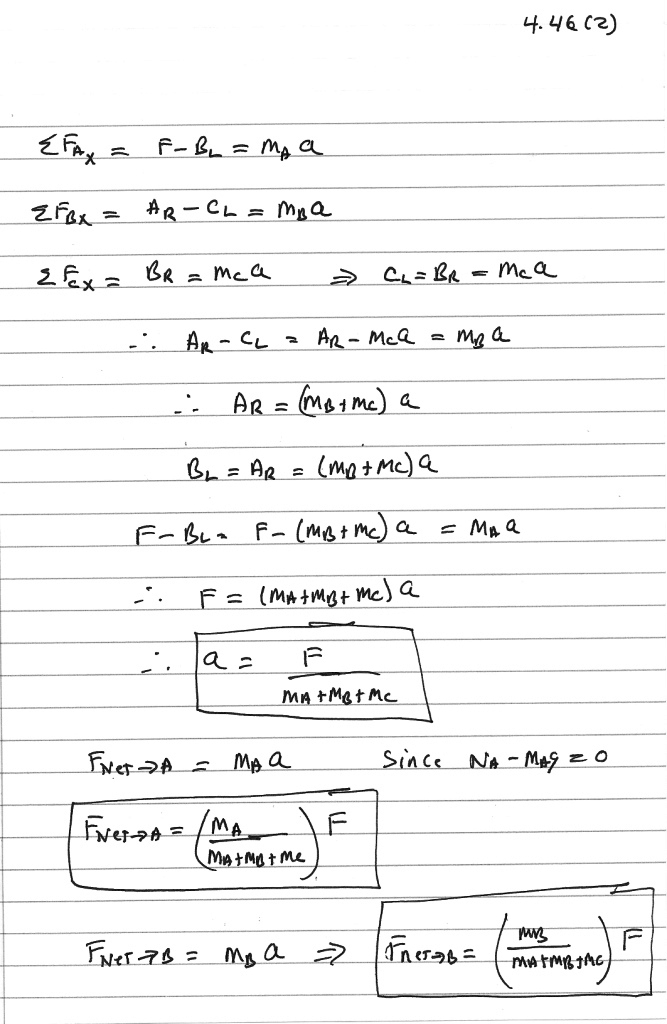 4.46(2)
ΣF_Ax = F - B_L = m_A a
ΣF_Bx = A_R - C_L = m_B a
ΣF_cx = B_R = m_c a ⇒ C_L = B_R = m_c a
∴ A_R - C_L = A_R - m_c a = m_B a
∴ A_R = (m_B + m_c) a
B_L = A_R = (m_B + m_c) a
F - B_L = F - (m_B + m_c) a = m_A a
∴ F = (m_A + m_B + m_c) a
∴ a = F / (m_A + m_B + m_c)
F_Net→A = m_A a Since N_A - m_A g = 0
F_Net→A = (m_A / (m_A + m_B + m_c)) F
F_Net→B = m_B a ⇒ F_net→B = (m_B / (m_A + m_B + m_c)) F